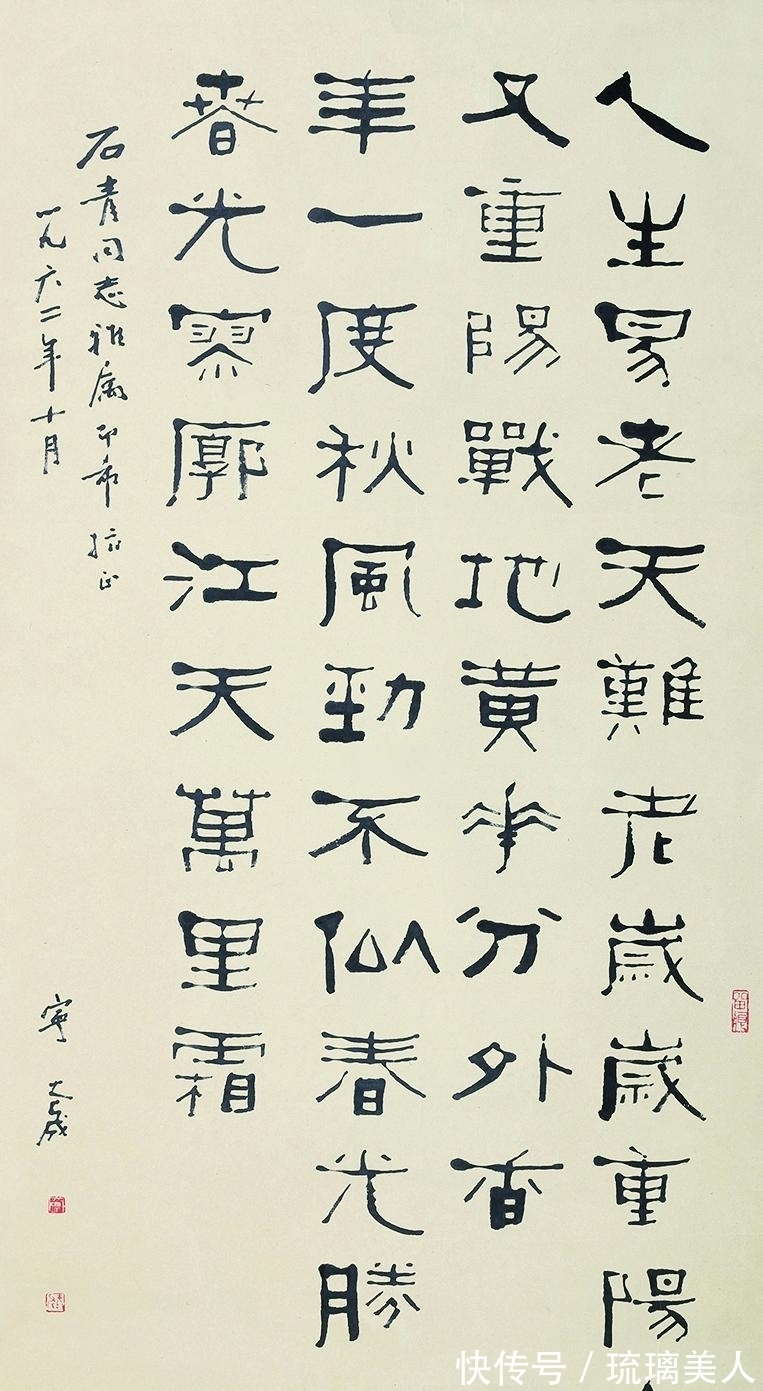 人生易老天難老歲歲重陽
又重陽戰地黃花分外香
年一度秋風勁不似春光勝
春光寥廓江天萬里霜
石青同志雅屬即希指正
一九六二年十月
寧斧成
快传号 / 琉璃美人